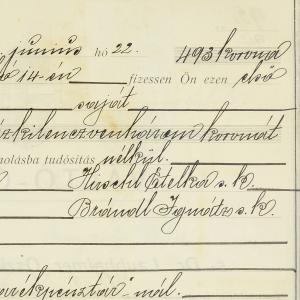 június hó 22. 493 korona
ó 14-én fizessen Ön ezen első
saját
zkilenczvenhárom koronát
nolásba tudósítás nélkül.
Hirschl Etelka s. k.
Brándl Ignátz s. k.
arékpénztár"-nál.